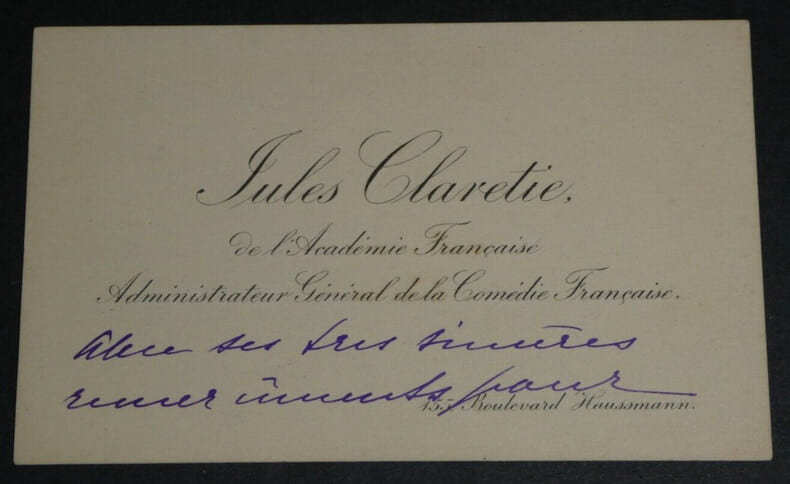 Jules Claretie,
de l'Académie Française
Administrateur Général de la Comédie Française.
avec ses très sincères
remerciments pour
155, Boulevard Haussmann.